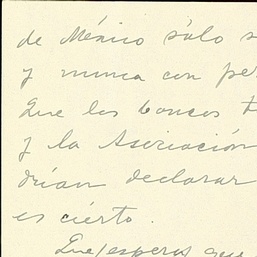 de México sólo s
y nunca con pe
Que los bancos t
y la Asociación
drían declarar
es cierto.
Que/esperas que